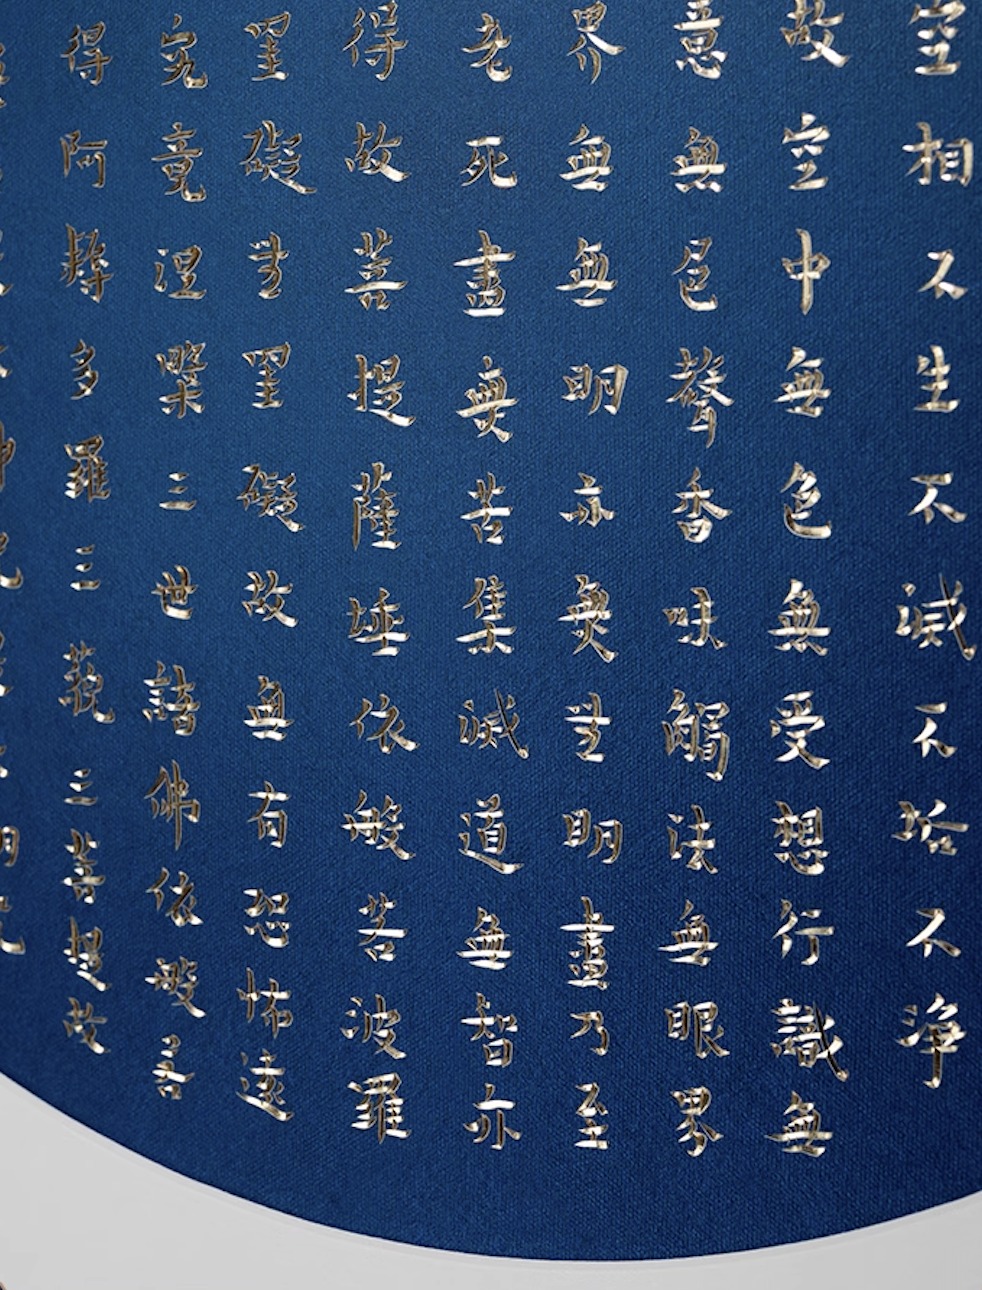 空相不生不滅不垢不淨
故空中無色無受想行識無
意無色聲香味觸法無眼界
界無無明亦無無明盡乃至
老死盡無苦集滅道無智亦
得故菩提薩埵依般若波羅
罣礙無罣礙故無有恐怖遠
究竟涅槃三世諸佛依般若
得阿耨多羅三藐三菩提故